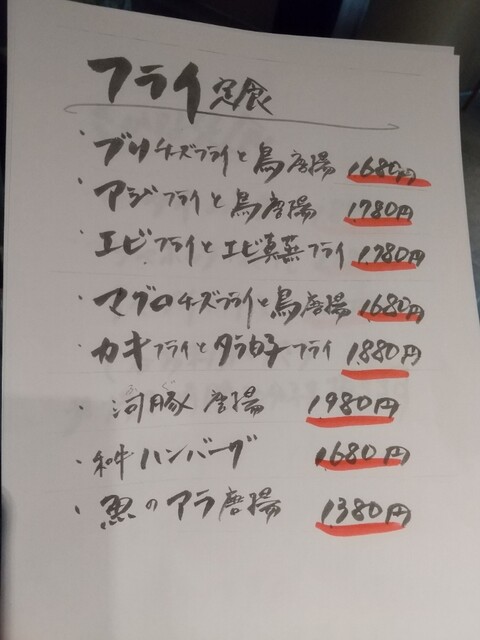 フライ定食
・ブリチーズフライと鳥唐揚 1680円
・アジフライと鳥唐揚 1780円
・エビフライとエビ真蒸フライ 1780円
・マグロチーズフライと鳥唐揚 1680円
・カキフライとタラ白子フライ 1880円
・河豚唐揚 1980円
・和牛ハンバーグ 1680円
・魚のアラ唐揚 1380円